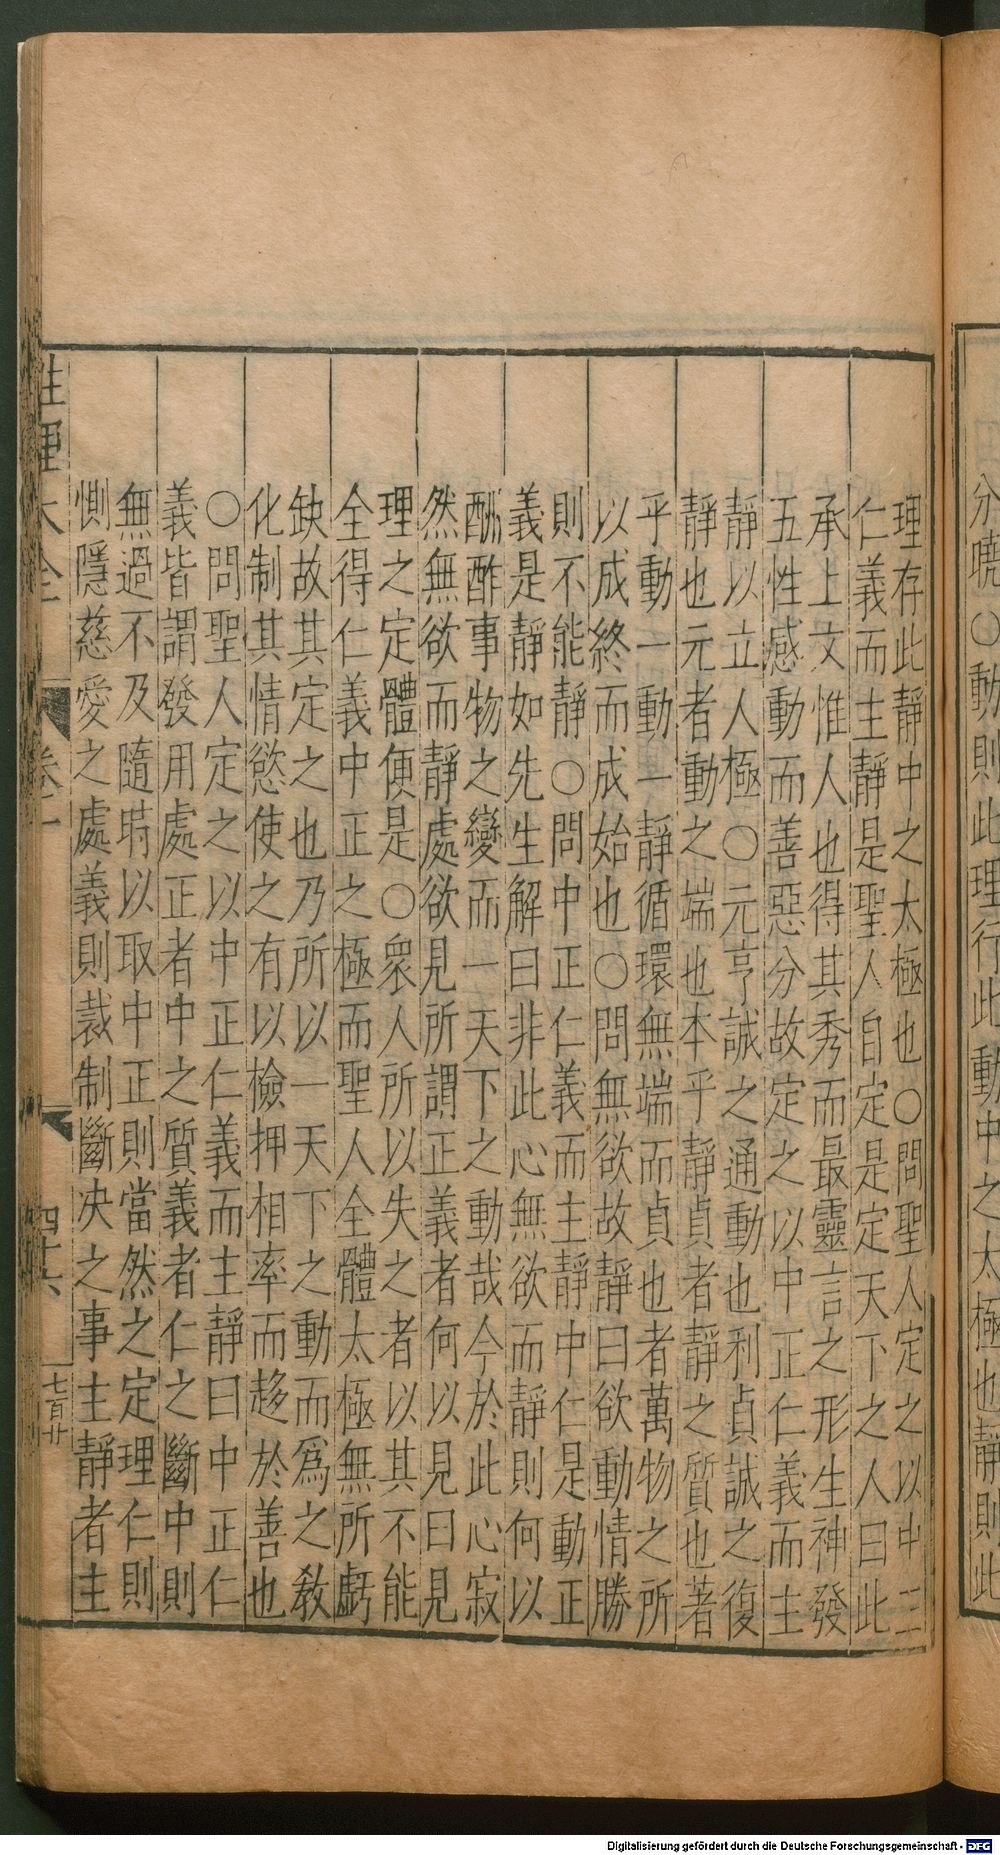 分曉○動則此理行此動中之太極也靜則此
理存此靜中之太極也○問聖人定之以中正
仁義而主靜是聖人自定是定天下之人曰此
承上文惟人也得其秀而最靈言之形生神發
五性感動而善惡分故定之以中正仁義而主
靜以立人極○元亨誠之通動也利貞誠之復
靜也元者動之端也本乎靜貞者靜之質也著
乎動一動一靜循環無端而貞也者萬物之所
以成終而成始也○問無欲故靜曰欲動情勝
則不能靜○問中正仁義而主靜中仁是動正
義是靜如先生解曰非此心無欲而靜則何以
酬酢事物之變而一天下之動哉今於此心寂
然無欲而靜處欲見所謂正義者何以見曰見
理之定體便是○衆人所以失之者以其不能
全得仁義中正之極而聖人全體太極無所虧
缺故其定之也乃所以一天下之動而爲之教
化制其情慾使之有以檢押相率而趍於善也
○問聖人定之以中正仁義而主靜曰中正仁
義皆謂發用處正者中之質義者仁之斷中則
無過不及隨時以取中正則當然之定理仁則
惻隱慈愛之處義則裁制斷决之事主靜者主
性理大全 卷一 四十六 七百廿
Digitalisierung gefördert durch die Deutsche Forschungsgemeinschaft - DFG